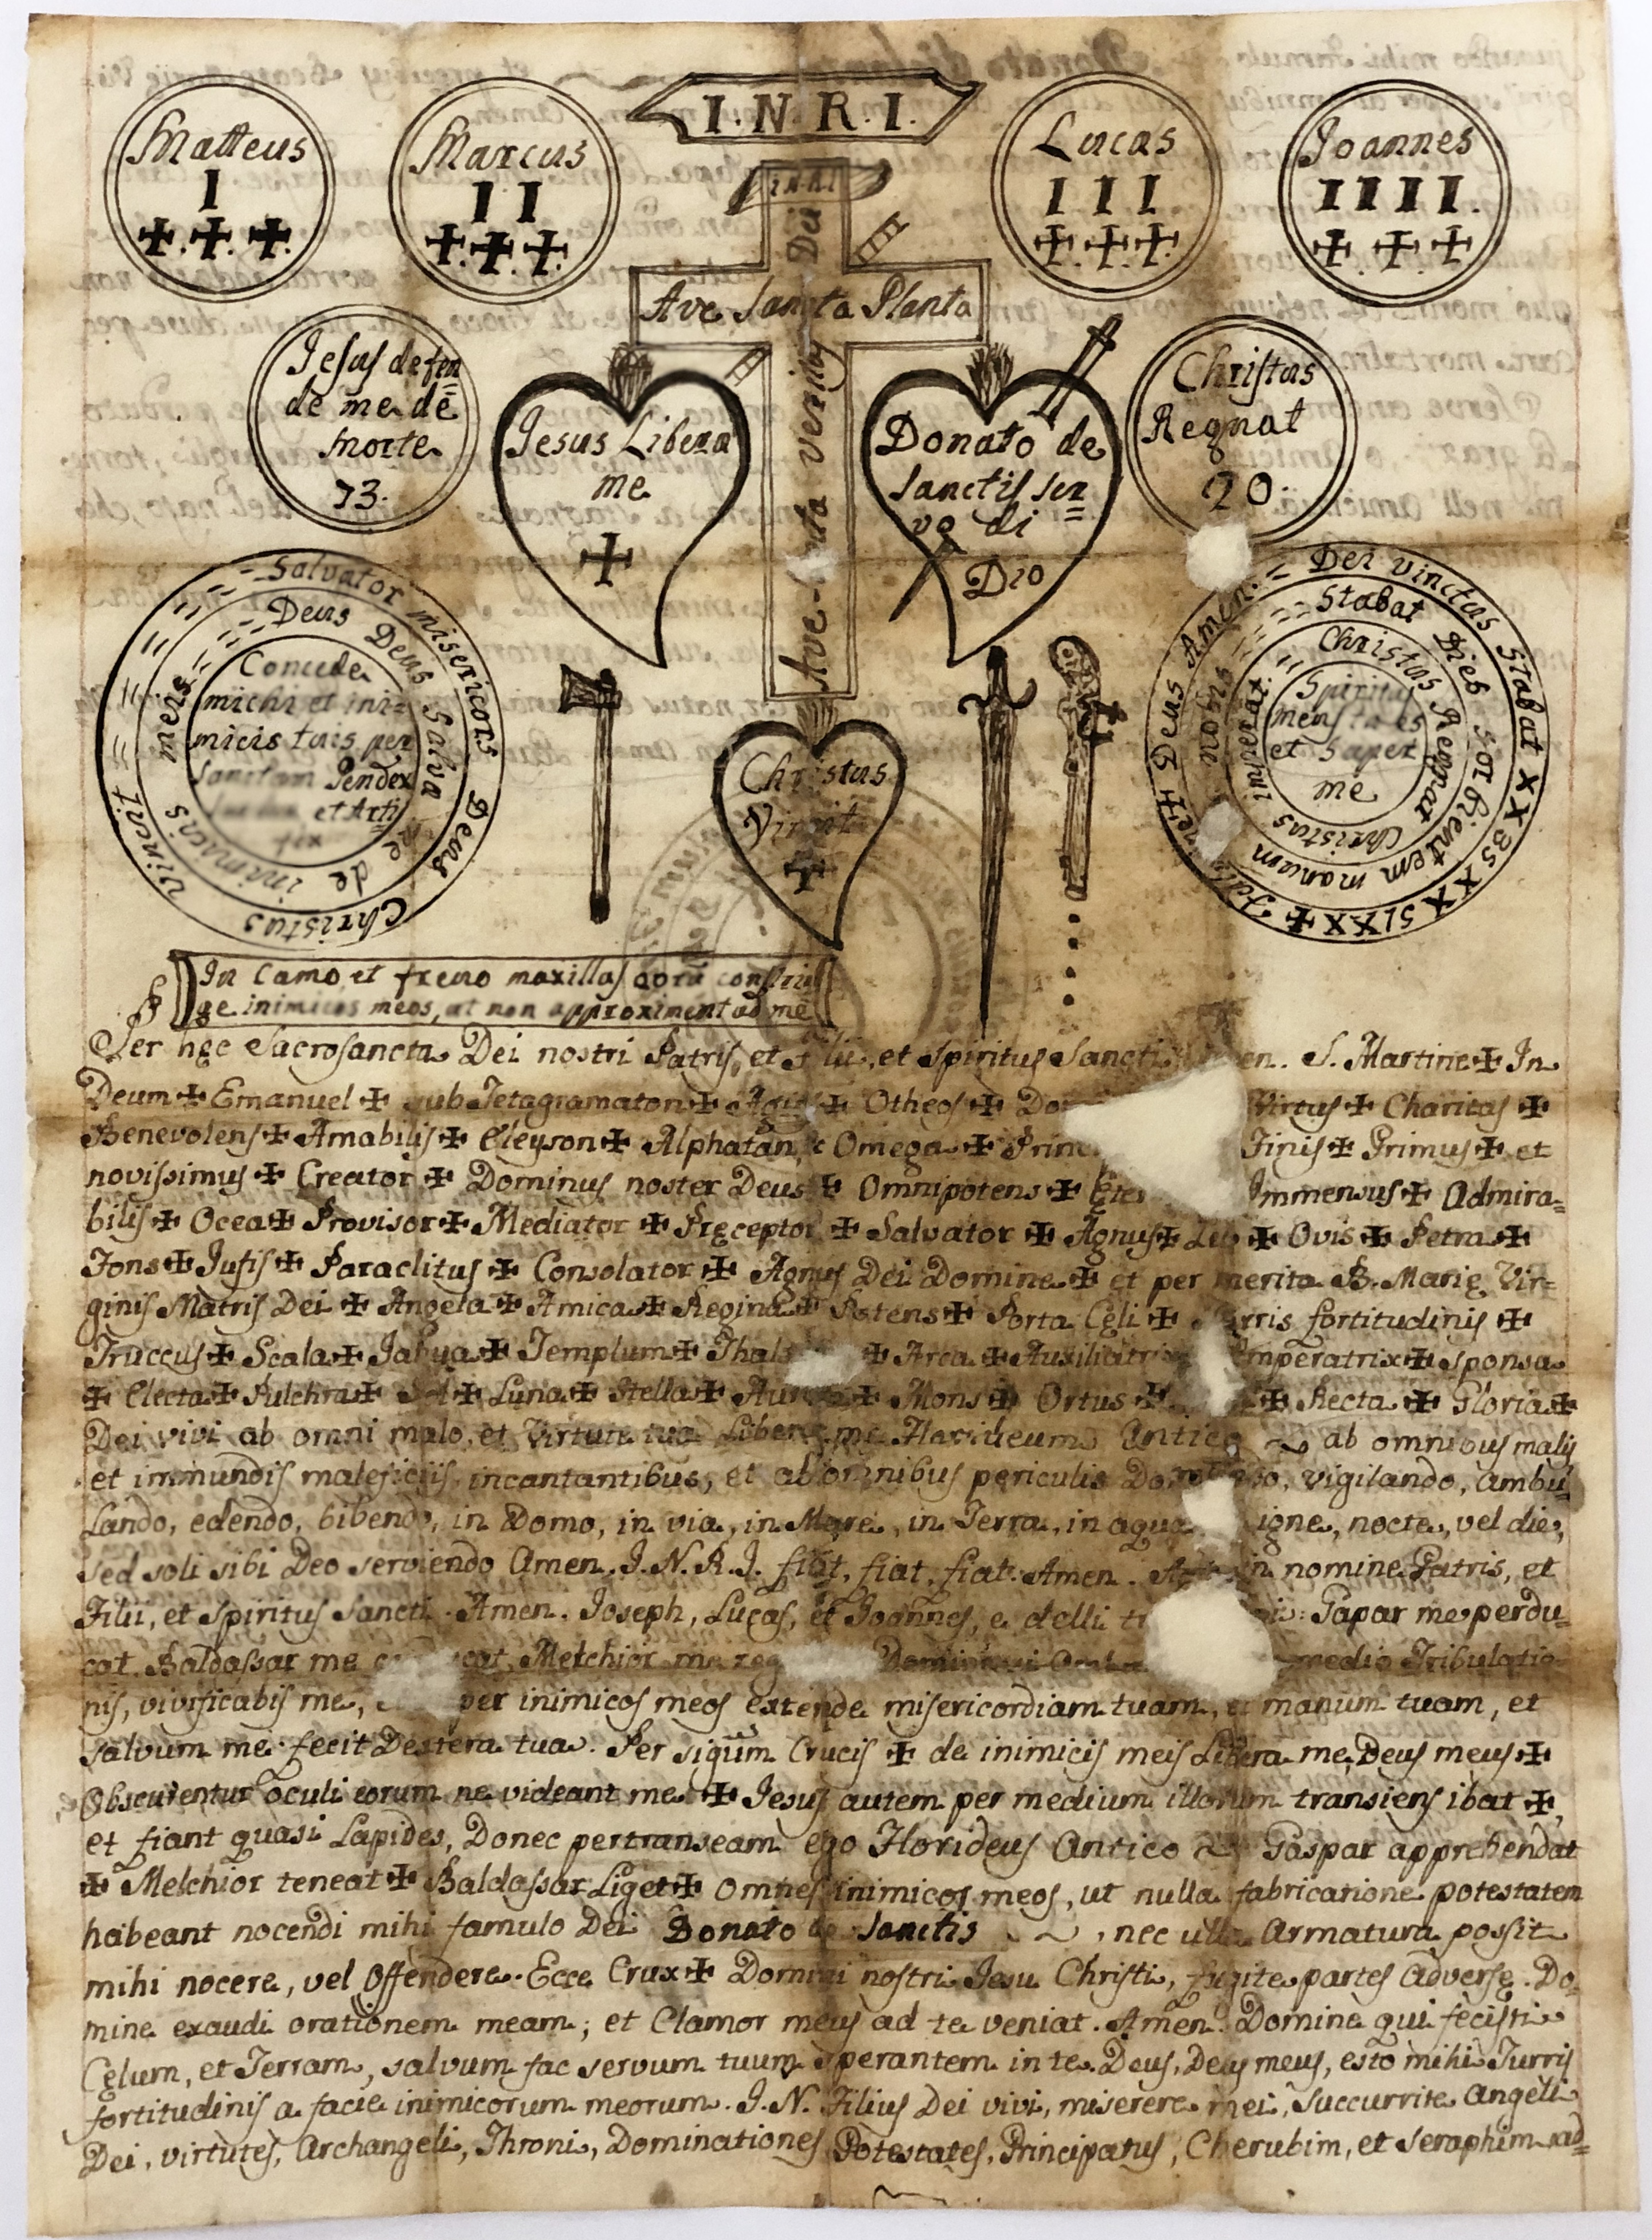 I.N.R.I.
Matteus
I
✠.✠.✠.
Marcus
II
✠.✠.✠.
Lucas
III
✠✠✠
Joannes
IIII.
✠ ✠ ✠
INRI
Ave Sancta Planta
Ave verita Dei
Jesus defen=
de me de
morte
73.
Jesus Libera
me
✠
Donato de
Sanctis ser=
vo di
Dio
Christus
Regnat
20.
Salvator misericors Deus Christus vincit
Deus Deus Salva me de inimicis meis
Concede
michi et ini=
micis tuis per
Sanctam Pende
et Arti
fex
Christus
Vincit
✠
Dei vinctus Stabat XX3SXXX5IXX✠ Deus Amen.
Stabat Dies Sorbientem manum
Christus Regnat Christus imperat
Spiritus
meus ta es
et super
me
In Camo et freno maxillas eorum constrin
ge inimicos meos, ut non approximent ad me
Per hęc Sacrosancta Dei nostri Patris, et Filii, et Spiritus Sancti en. S. Martine ✠ In
Deum ✠ Emanuel ✠ sub Tetagramaton ✠ Agios ✠ Otheos ✠ Do Virtus ✠ Charitas ✠
Benevolens ✠ Amabilis ✠ Eleyson ✠ Alphatan, Omega ✠ Princ Finis ✠ Primus ✠ et
novissimus ✠ Creator ✠ Dominus noster Deus ✠ Omnipotens ✠ Ete Immensus ✠ Admira=
bilis ✠ Ocea ✠ Provisor ✠ Mediator ✠ Pręceptor ✠ Salvator ✠ Agnus ✠ Leo ✠ Ovis ✠ Petra ✠
Fons ✠ Justis ✠ Paraclitus ✠ Consolator ✠ Agnus Dei Domine ✠ et per merita B. Marię Vir=
ginis Matris Dei ✠ Angela ✠ Amica ✠ Regina ✠ Potens ✠ Porta Cęli ✠ Turris fortitudinis ✠
Fruccus ✠ Scala ✠ Janua ✠ Templum ✠ Thala ✠ Arca ✠ Auxiliatrix Imperatrix ✠ Sponsa
✠ Electa ✠ Pulchra ✠ Sol ✠ Luna ✠ Stella ✠ Aurora ✠ Mons ✠ Ortus ✠ ✠ Recta ✠ Gloria ✠
Dei vivi ab omni malo, et Virtute tua Libera me Florideum Antico ab omnibus malis
et immundis maleficiis, incantantibus, et ab omnibus periculis Dormiendo, vigilando, ambu=
Lando, edendo, bibendo, in Domo, in via, in Mare, in Terra, in aqua igne, nocte, vel die,
sed soli sibi Deo serviendo Amen. I.N.R.I. fiat, fiat, fiat. Amen. in nomine Patris, et
Filii, et Spiritus Sancti. Amen. Joseph, Lucas, et Joannes, e delli Gapar me perdu=
cat. Baldassar me cat. Melchior me reg medio Tribulatio
nis, vivificabis me, per inimicos meos extende misericordiam tuam, et manum tuam, et
salvum me fecit Dextera tua. Per signum Crucis ✠ de inimicis meis Libera me, Deus meus ✠
Obscurentur oculi eorum ne videant me ✠ Jesus autem per medium illorum transiens ibat ✠,
et fiant quasi Lapides, Donec pertranseam ego Florideus Antico Gaspar apprehendat
✠ Melchior teneat ✠ Baldassar Liget ✠ omnes inimicos meos, ut nulla fabricatione potestatem
habeant nocendi mihi famulo Dei Donato de Sanctis, nec ulla Armatura possit
mihi nocere, vel Offendere. Ecce Crux ✠ Domini nostri Jesu Christi, fugite partes Adversę. Do=
mine exaudi orationem meam; et Clamor meus ad te veniat. Amen. Domine qui fecisti
Cęlum, et Terram, salvum fac servum tuum sperantem in te Deus, Deus meus, esto mihi Turris
fortitudinis a facie inimicorum meorum. I.N. Filius Dei vivi, miserere mei, Succurrite Angeli
Dei, virtutes, Archangeli, Throni, Dominationes Potestates, Principatus, Cherubim, et Seraphim ad=